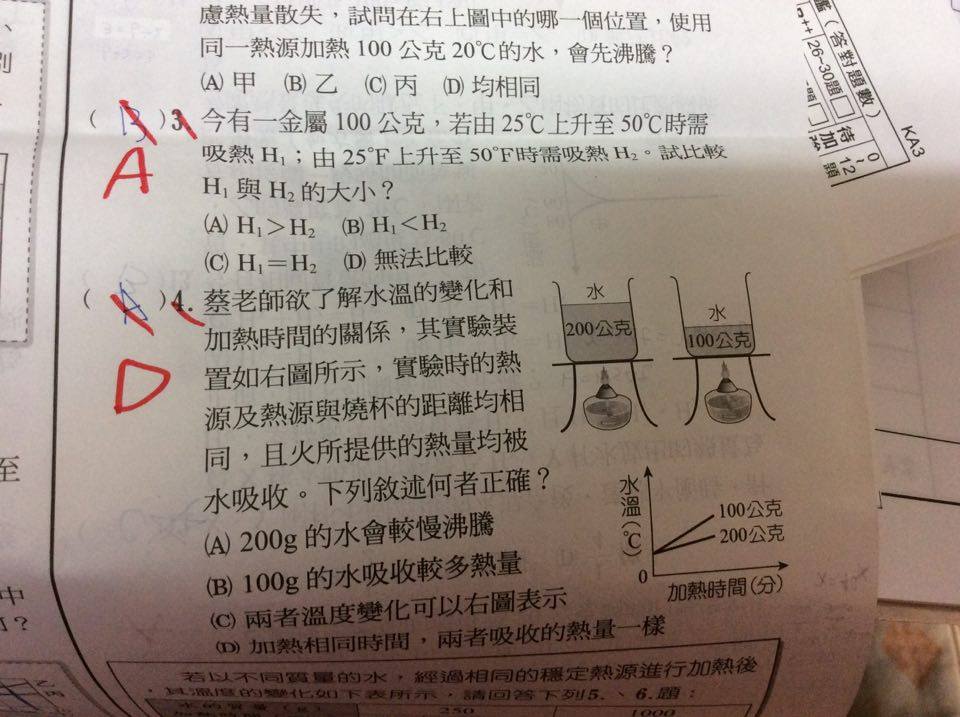 慮熱量散失，試問在右上圖中的哪一個位置，使用
同一熱源加熱 100 公克 20℃的水，會先沸騰？
(A) 甲 (B) 乙 (C) 丙 (D) 均相同
( B ) 3. 今有一金屬 100 公克，若由 25℃上升至 50℃時需
A
吸熱 H₁；由 25℉上升至 50℉時需吸熱 H₂。試比較
H₁ 與 H₂ 的大小？
(A) H₁＞H₂ (B) H₁＜H₂
(C) H₁＝H₂ (D) 無法比較
( A ) 4. 蔡老師欲了解水溫的變化和
加熱時間的關係，其實驗裝
D
置如右圖所示，實驗時的熱
源及熱源與燒杯的距離均相
同，且火所提供的熱量均被
水吸收。下列敘述何者正確？
(A) 200g 的水會較慢沸騰
(B) 100g 的水吸收較多熱量
(C) 兩者溫度變化可以右圖表示
(D) 加熱相同時間，兩者吸收的熱量一樣
水
200公克
水
100公克
水溫(℃)
100公克
200公克
0
加熱時間(分)
若以不同質量的水，經過相同的穩定熱源進行加熱後
，其溫度的變化如下表所示，請回答下列5.、6.題：
水的質量 (g) 250 1000
(答對題數)
26~30題
待加
0~12題
KA3